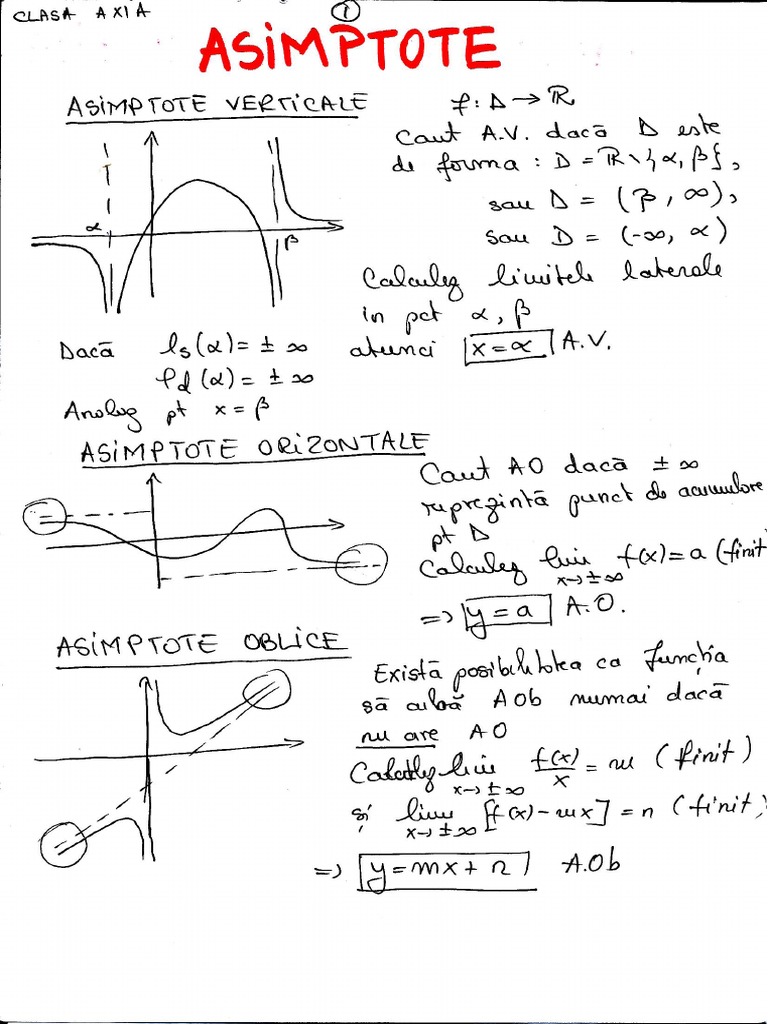 CLASA A XI A
1
ASIMPTOTE
ASIMPTOTE VERTICALE
f: D → ℝ
Caut A.V. dacă D este
de forma: D = ℝ \ {α, β},
sau D = (β, ∞),
sau D = (-∞, α)
α
β
Calculez limitele laterale
in pct α, β
Dacă ls(α) = ± ∞ atunci x = α A.V.
ld(α) = ± ∞
Analog pt x = β
ASIMPTOTE ORIZONTALE
Caut AO dacă ± ∞
reprezintă punct de acumulare
pt D
Calculez lim x→±∞ f(x) = a (finit)
=> y = a A.O.
ASIMPTOTE OBLICE
Există posibilitatea ca funcția
să aibă AOb numai dacă
nu are AO
Calculez lim x→±∞ f(x)/x = m (finit)
și lim x→±∞ [f(x) - mx] = n (finit)
=> y = mx + n A.Ob